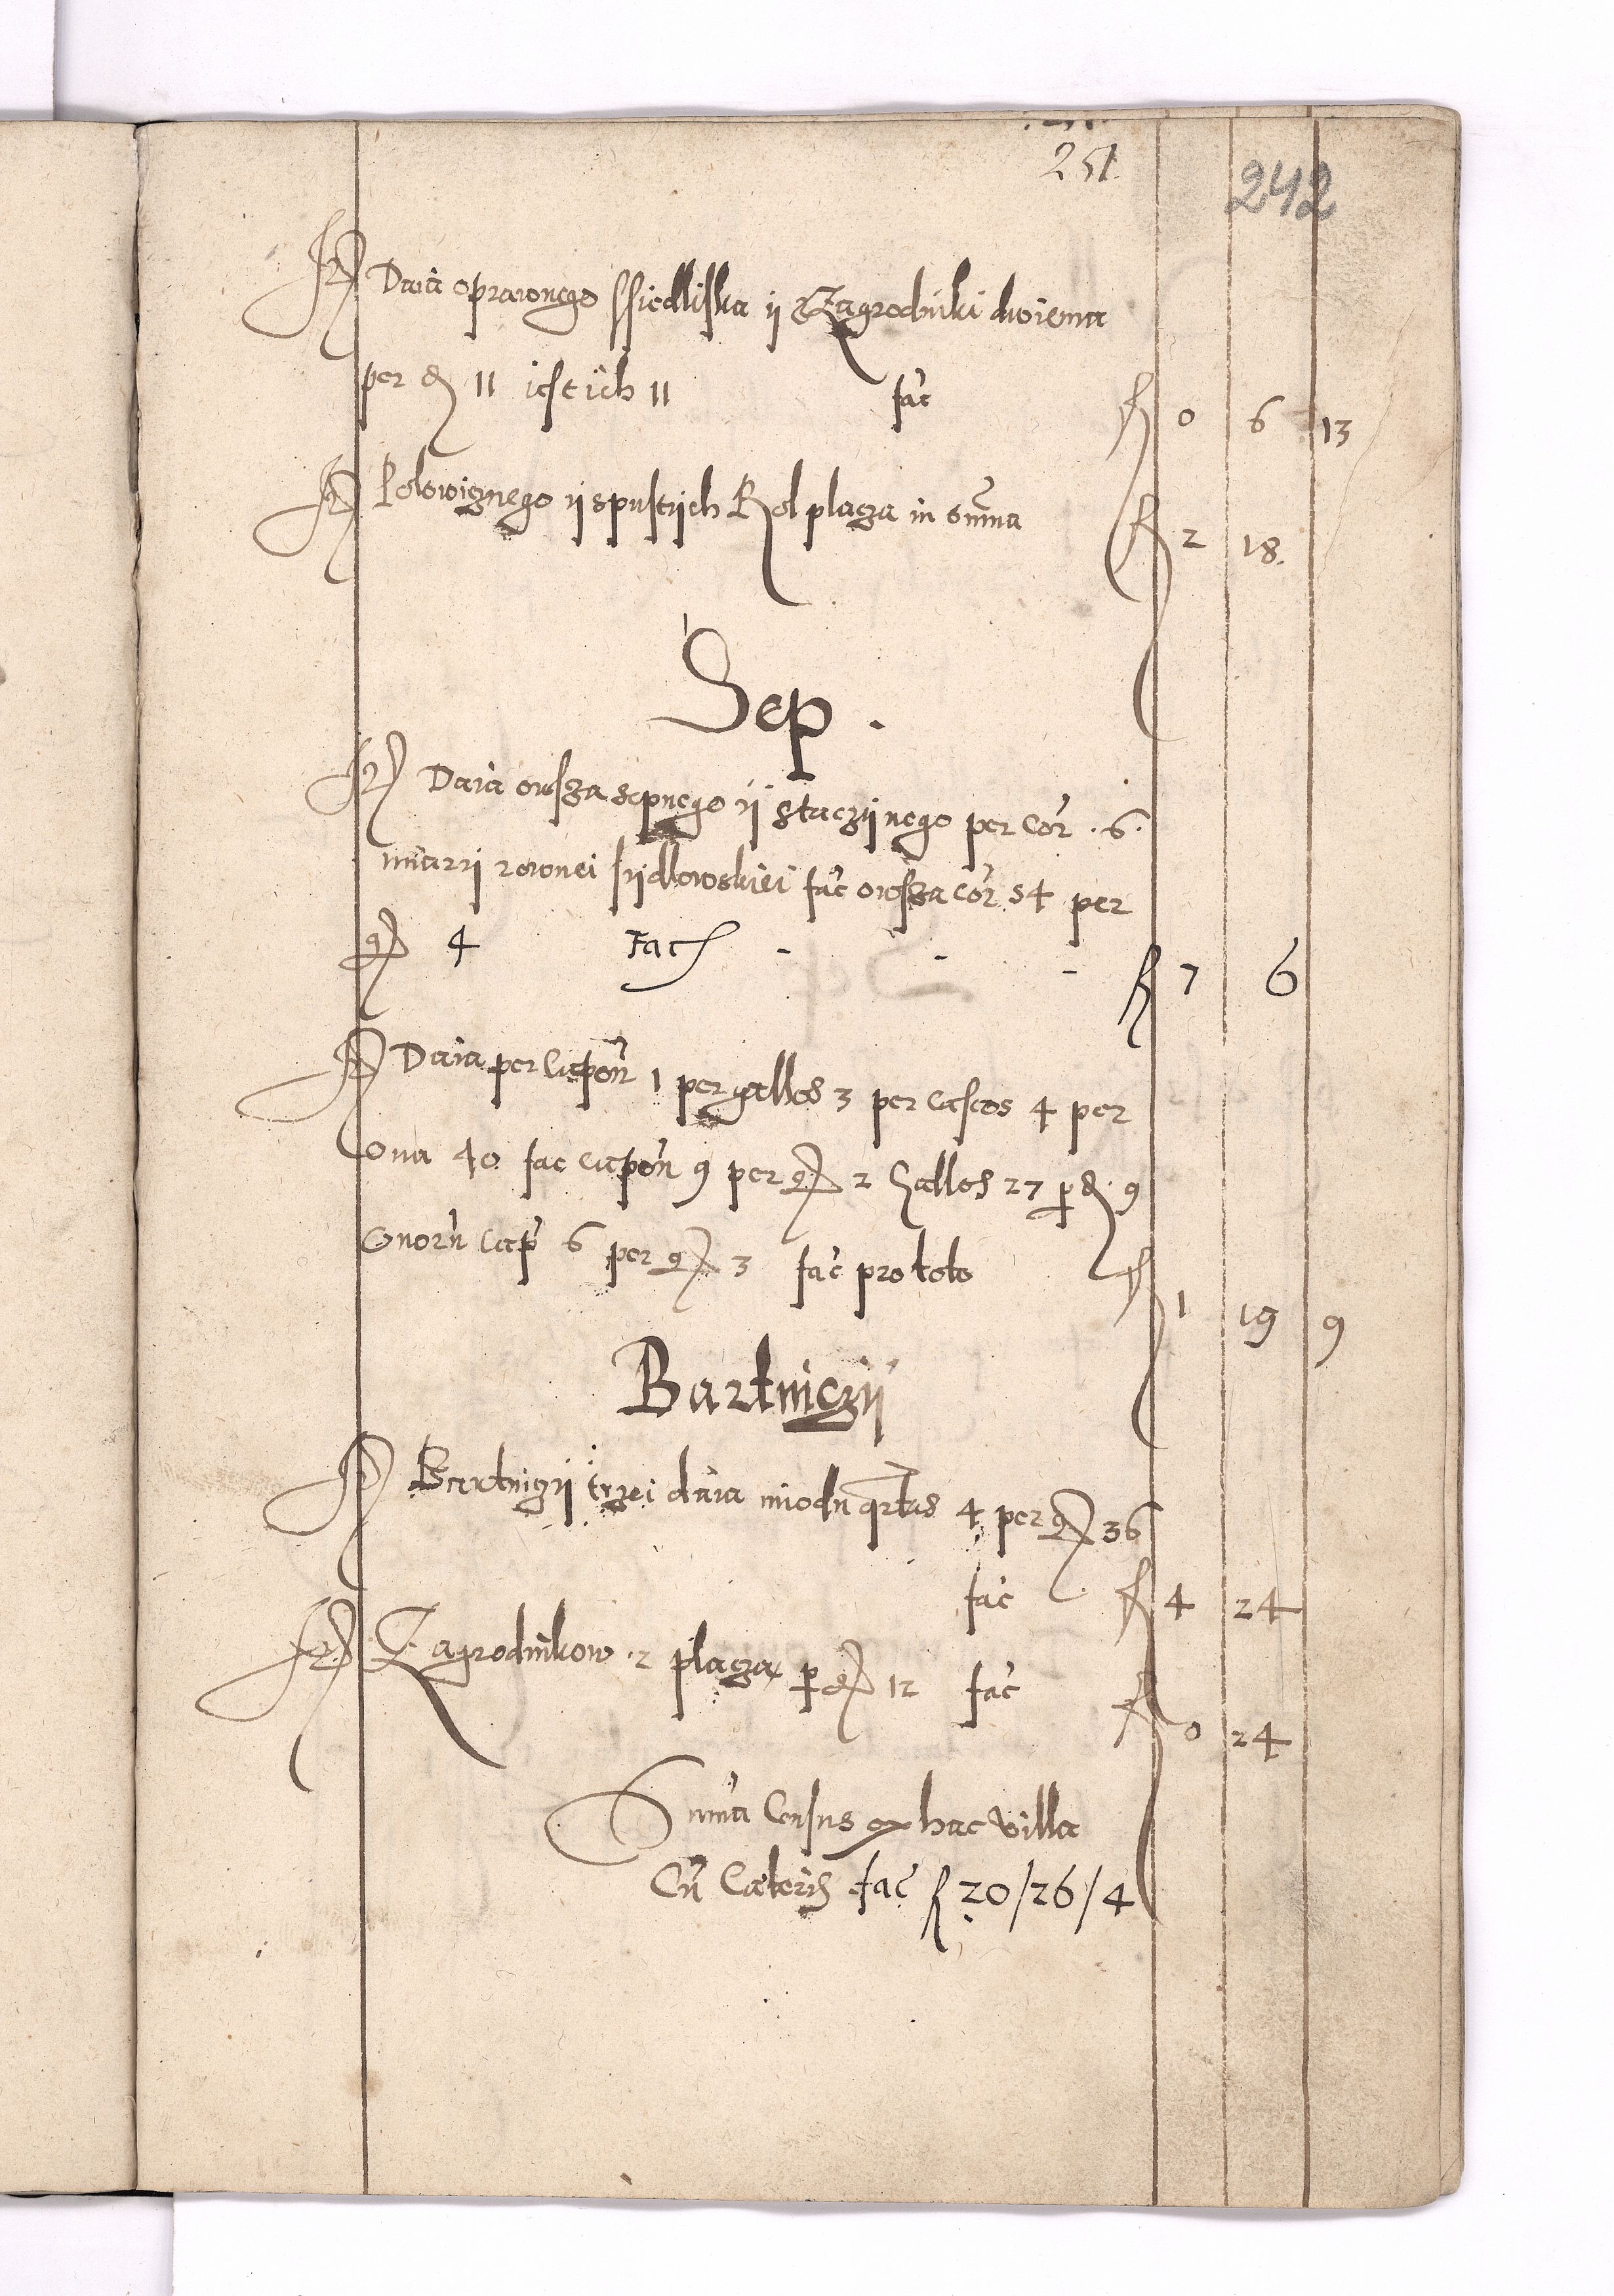 251.
242
It Daia oprawnego Ssiedliska ij Zagrodniki dwiema
per d 11 iest ich 11 fac f 0 6 13
It Polowiznego ij spustijch Rol placza in summa f 2 18.
Sep.
It Daia owsza sepnego ij staczijnego per cor. 6.
miarrij rownei sijdlowskiei fac owsza cor 54 per
g 4 Fac - - - f 7 6
It Daia per capon 1 per gallos 3 per caseos 4 per
ova 40 fac capon 9 per g 2 Gallos 27 p d. 9
Cap 6 per g 3 fac pro toto f 1 19 9
Bartniczij
It Bartniczij trzei daia miodu qrtas 4 per g 36
fac f 4 24
It Zagrodnikow 2 placza p g 12 fac f 0 24
Summa Census ex hac villa
Cu Cæteris fac f 20/26/4